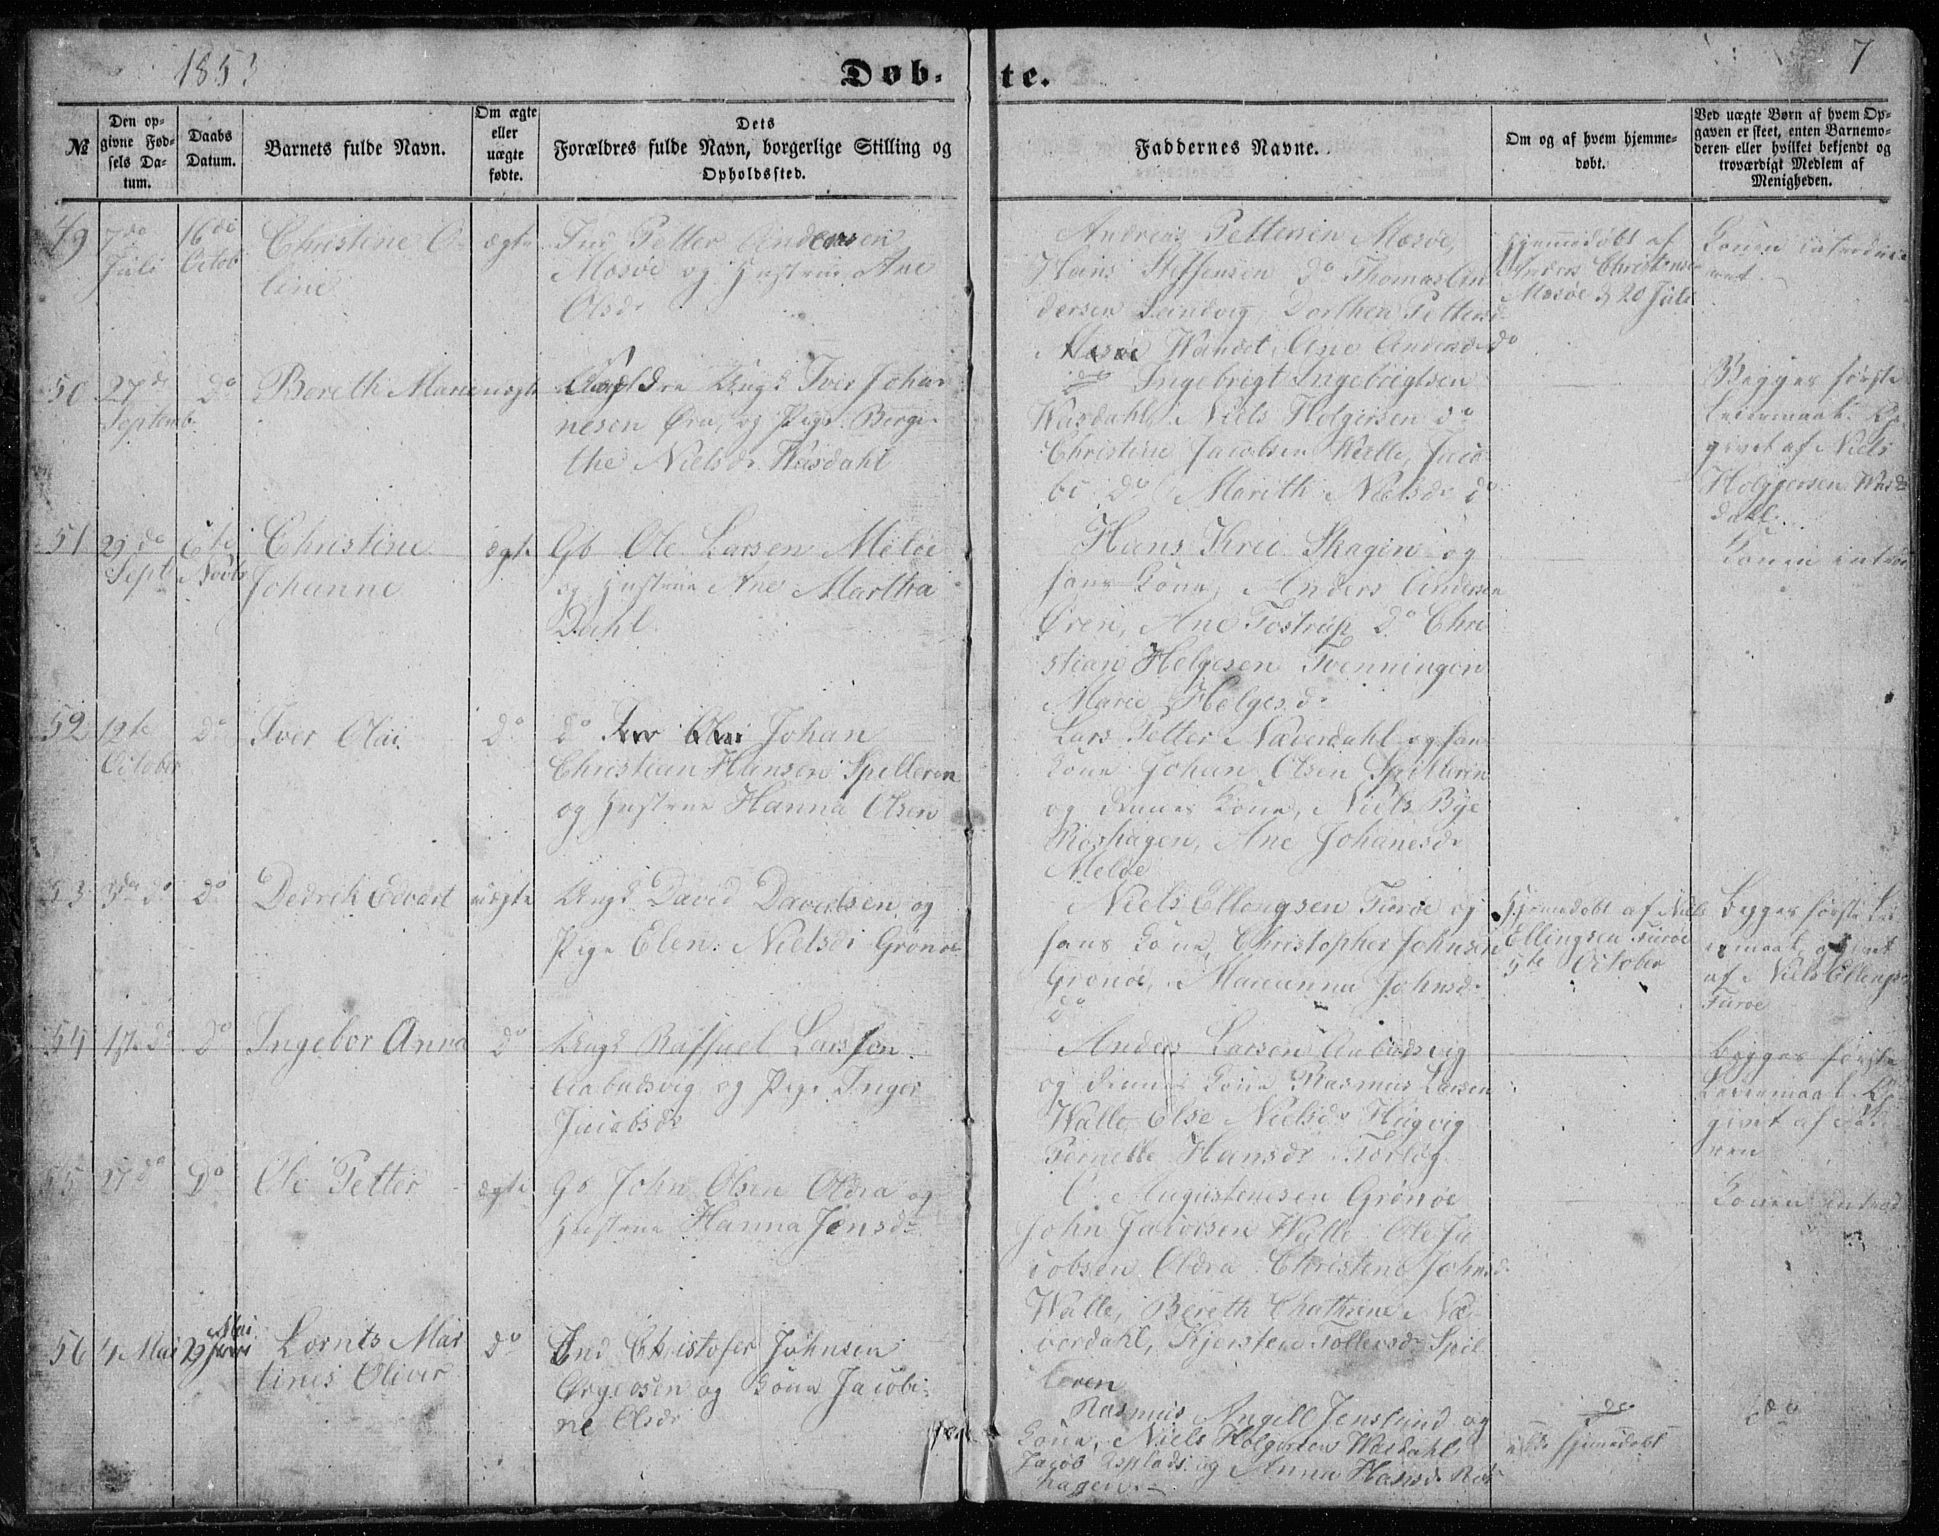 1853
7
Døb-
te.
№
Den op-
givne Fød-
sels Da-
tum.
Daabs
Datum.
Barnets fulde Navn.
Om ægte
eller
uægte
fødte.
Dets
Forældres fulde Navn, borgerlige Stilling og
Opholdssted.
Faddernes Navne.
Om og af hvem hjemme-
døbt.
Ved uægte Børn af hvem Op-
gaven er skeet, enten Barnemo-
deren eller hvilket bekjendt og
troværdigt Medlem af
Menigheden.
49
7de
Juli
16de
Octob
Christine O-
line
ægte
Ind Petter Andersen
Mosøe og Hustrue Ane
Olsdr
Andreas Pettersen Mosøe,
Hans Steffensen do Thomas An
dersen Sandvig, Dorthea Pettersd
Mosøe Wandet, Ane Andersd do
Hjemmedøbt af
Anders Christense
Mosøe d 20 Juli
Konen introduce
ret
50
27de
Septemb
do
Bereth Marie
uægte
Ungk Iver Johan
nesen Øra, og Pige Berge
the Nielsdr Wasdahl
Ingebrigt Ingebrigtsen
Wasdahl, Niels Holgersen do
Christine Jacobsen Walle, Jaco
be do Mareth Nielsdr do
Begges første
Leiermaal. Op
givet af Niels
Holgersen Was
dahl.
51
29de
Sept
6te
Novbr
Christine
Johanne
ægte
Gb Ole Larsen Meløe
og Hustrue Ane Martha
Dahl
Hans Krei Skagen og
hans Kone, Anders Andersen
Øren, Ane Tostrup do Chri
stian Helgesen Tvenningen
Maren Helgesdr
Konen introd
52
12te
October
do
Iver Olai
do
do Johan
Christian Hansen Spilleren
og Hustrue Hanna Olsen
Lars Petter Næverdahl og han
Kone Johan Olsen Spilleren
og dennes Kone, Niels Bye
Reshagen, Ane Johanesdr
Meløe
53
3de do
do
Dedrik Edvart
uægte
Ungk David Davidsen og
Pige Elen Nielsdr Grønøe
Niels Ellingsen Turøe og
hans Kone, Christopher Johnsen
Grønøe, Marianna Johnsdr
do
Hjemmedøbt af Niels
Ellingsen Turøe
5te October
Begges første Lei
ermaal, opgivet
af Niels Ellings
Turøe
54
17de do
do
Ingebor Anna
do
Ungk Raffael Larssen
Aabudsvig og Pige Inger
Jacobsdr
Anders Larsen Aabudsvig
og dennes Kone Rasmus Larsen
Walle Else Nielsdr Hagvig
Pernelle Hansdr Forløg
begges første
Leiermaal. Op
givet af Fad
deren
55
27do
Do
Ole Petter
ægte
Gb John Olsen Oldra og
Hustrue Hanna Jensdr
C. Augustenusen Grønøe
John Jacobsen Walle Ole Ja
cobsen Oldra Christene Johnsd
Walle, Bereth Chathrine Næ
verdahl, Kjersten Tollefsdr Spil
leren
Konen introd
56
4 Mai
29 Mai
Lornts Mar
tines Oliver
do
Ind Christofer Johnsen
Ørgeosen og Kone Jacobi-
ne Olsdr
Rasmus Angell Jenslund og
Kone, Niels Holgersen Wasdahl,
Jacob Esplads og Anna Hansdr Res
hagen.
do
ikke hjemmedøbt
do